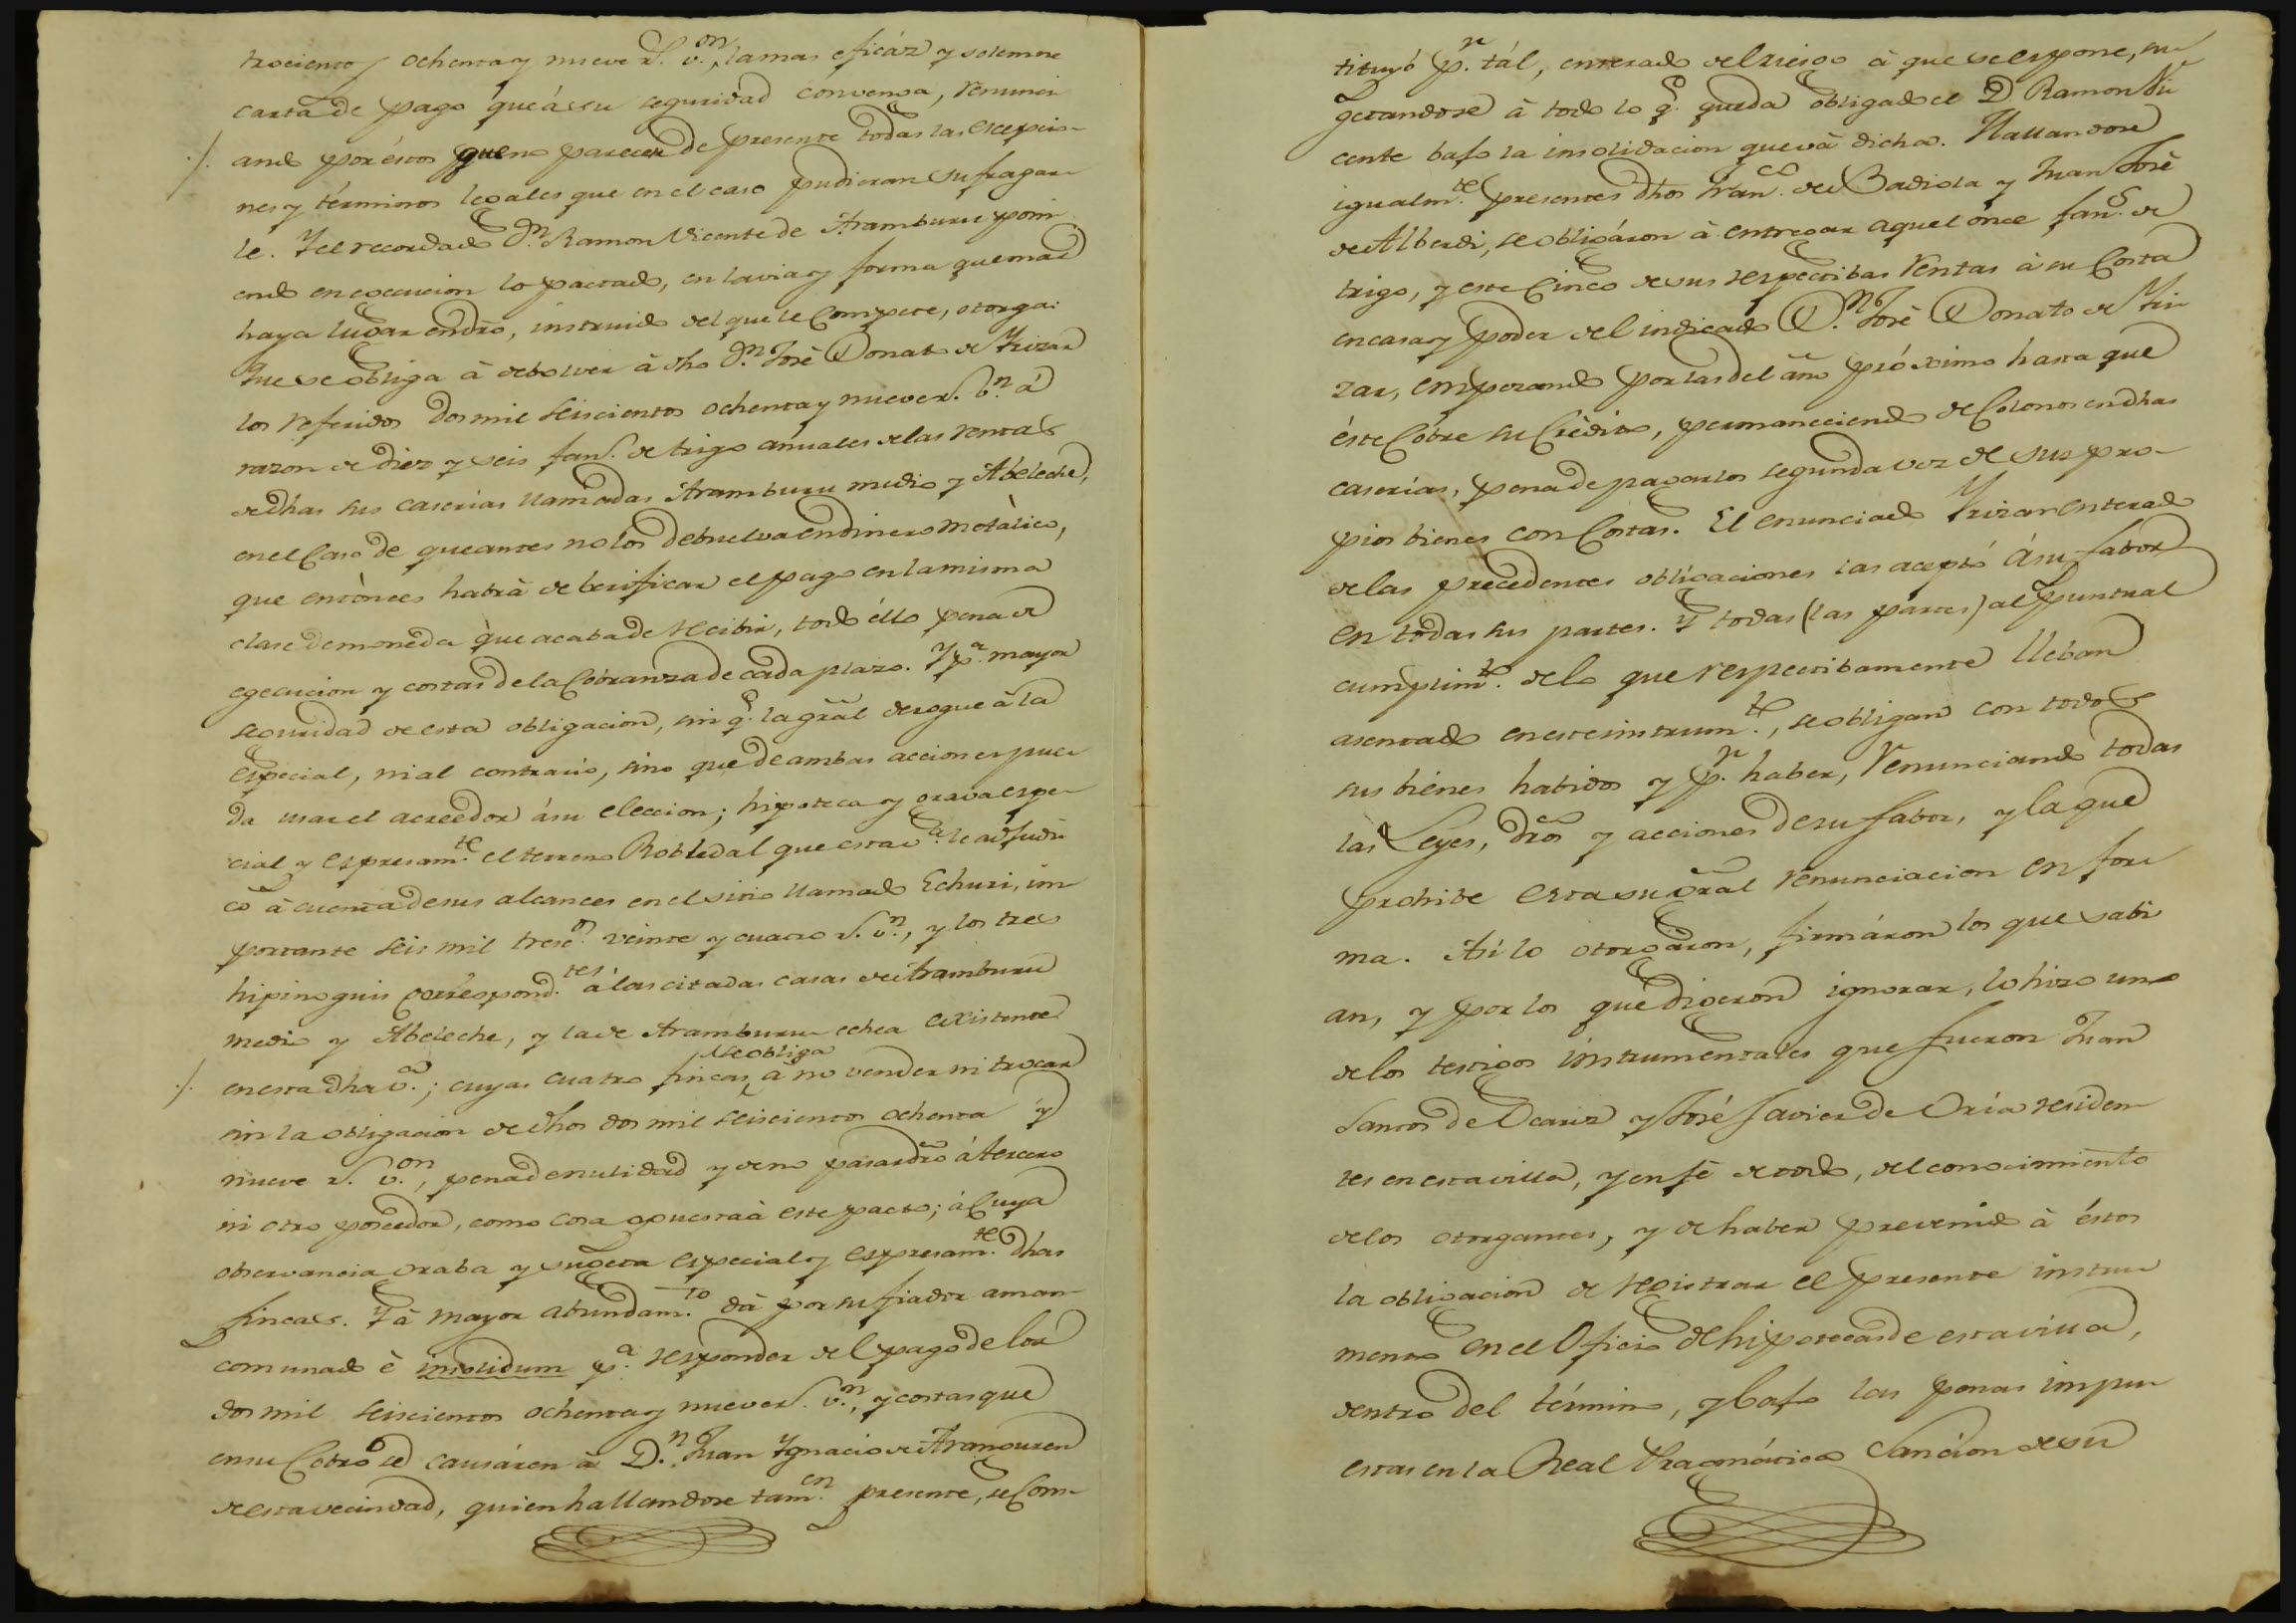 trociento, ochenta y nueve r.s v.on, la mas eficáz y solemne
carta de pago que á su seguridad convenga, renunci
ando por éstos que no parecen de presente todas las escepcio-
nes y términos legales que en el caso pudieran sufragar
le. Y el recordado D.n Ramon Vicente de Aramburu poni
endo en egecucion lo pactado, en la via y forma que mas
haya lugar en dro, instruido del que le Compete, otorga:
Que se obliga à debolver à dho D.n José Donato de Yrizar
los referidos dos mil seiscientos ochenta y nueve r.s v.n á
razon de diez y seis fan.s de trigo anuales de las rentas
de dhas sus caserias llamadas Aramburu medio y Abeleche,
en el Caso de que antes no los debuelva en dinero metálico,
que entónces habrà de berificar el pago en la misma
clase de moneda que acaba de recibir, todo éllo pena de
egecucion y costas de la Cobranza de cada plazo. Y p.a mayor
seguridad de esta obligacion, sin q.e la grãl derogue à la
especial, ni al contrario, sino que de ambas acciones pue
da usar el acreedor á su eleccion; hipoteca y grava espe
cial y espresam.te el terreno Robledal que esta v.a le adjudi
có à cuenta de sus alcances en el sitio llamado Echuri, im
portante seis mil tresc.s veinte y cuatro r.s v.n, y los tres
hipinoguis correspond.tes á las citadas casas de Aramburu
medio y Abeleche, y la de Aramburu echea existente
se obliga
en esta dha v.a; cuyas cuatro fincas, a no vender ni trocar
sin la obligacion de dhos dos mil seiscientos ochenta y
nueve r.s v.on, pena de nulidad y de no pasar dro á tercero
ni otro poseedor, como cosa opuesta à este pacto; á Cuya
observancia graba y sugeta especial y espresam.te dhas
fincas. Y à mayor abundam.to dà por su fiador aman-
comunado è insolidum p.a responder del pago de los
dos mil seiscientos ochenta y nueve r.s v.n, y costas que
en su Cobro se causáren à D.n Juan Ygnacio de Aranguren
de esta vecindad, quien hallandose tam.en presente, se Cons-
tituyó p.r tál, enterado del riesgo à que se espone, su
getandose à todo lo q.e queda obligado el D Ramon Vi
cente bajo la insolidacion que và dicha. Hallandose
igualm.te presentes dhos Fran.co de Badiola y Juan José
de Alberdi, se obligáron à entregar aquel once fan.s de
trigo, y este Cinco de sus respectibas rentas à su Costa
en casa y poder del indicado D.n José Donato de Yri
zar, empezando por las del año próximo hasta que
éste Cobre su Crédito, permaneciendo de Colonos en dhas
caserias, pena de pagarlos segunda vez de sus pro-
pios bienes con Costas. El enunciado Yrizar enterado
de las precedentes obligaciones las aceptó á su fabor
en todas sus partes. Y todas (las partes) al puntual
cumplim.to de lo que respectibamente lleban
asentado en este instrum.to, se obligan con todos
sus bienes habidos y p.r haber, renunciando todas
las Leyes, dros y acciones de su fabor, y la que
prohibe esta su grãl renunciacion en for
ma. Asi lo otorgáron, firmáron los que sabi
an, y por los que digeron ignorar, lo hizo uno
de los testigos instrumentales que fueron Juan
Santos de Ocariz y José Javier de Oria residen
tes en esta villa, y en fé de todo, del conocimiento
de los otorgantes, y de haber prevenido à éstos
la obligacion de registrar el presente instru
mento en el Oficio de hipotecas de esta villa,
dentro del término, y bajo las penas impu
estas en la Real Pragmática Sancion de su